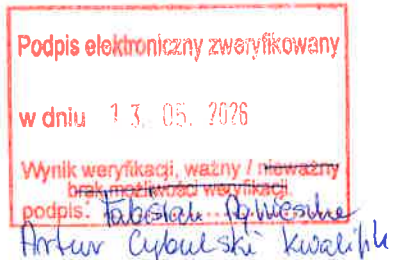 Podpis elektroniczny zweryfikowany
w dniu 13. 05. 2026
Wynik weryfikacji, ważny / nieważny
brak możliwości weryfikacji.
podpis: Agnieszka
Artur Cybulski kwalifik